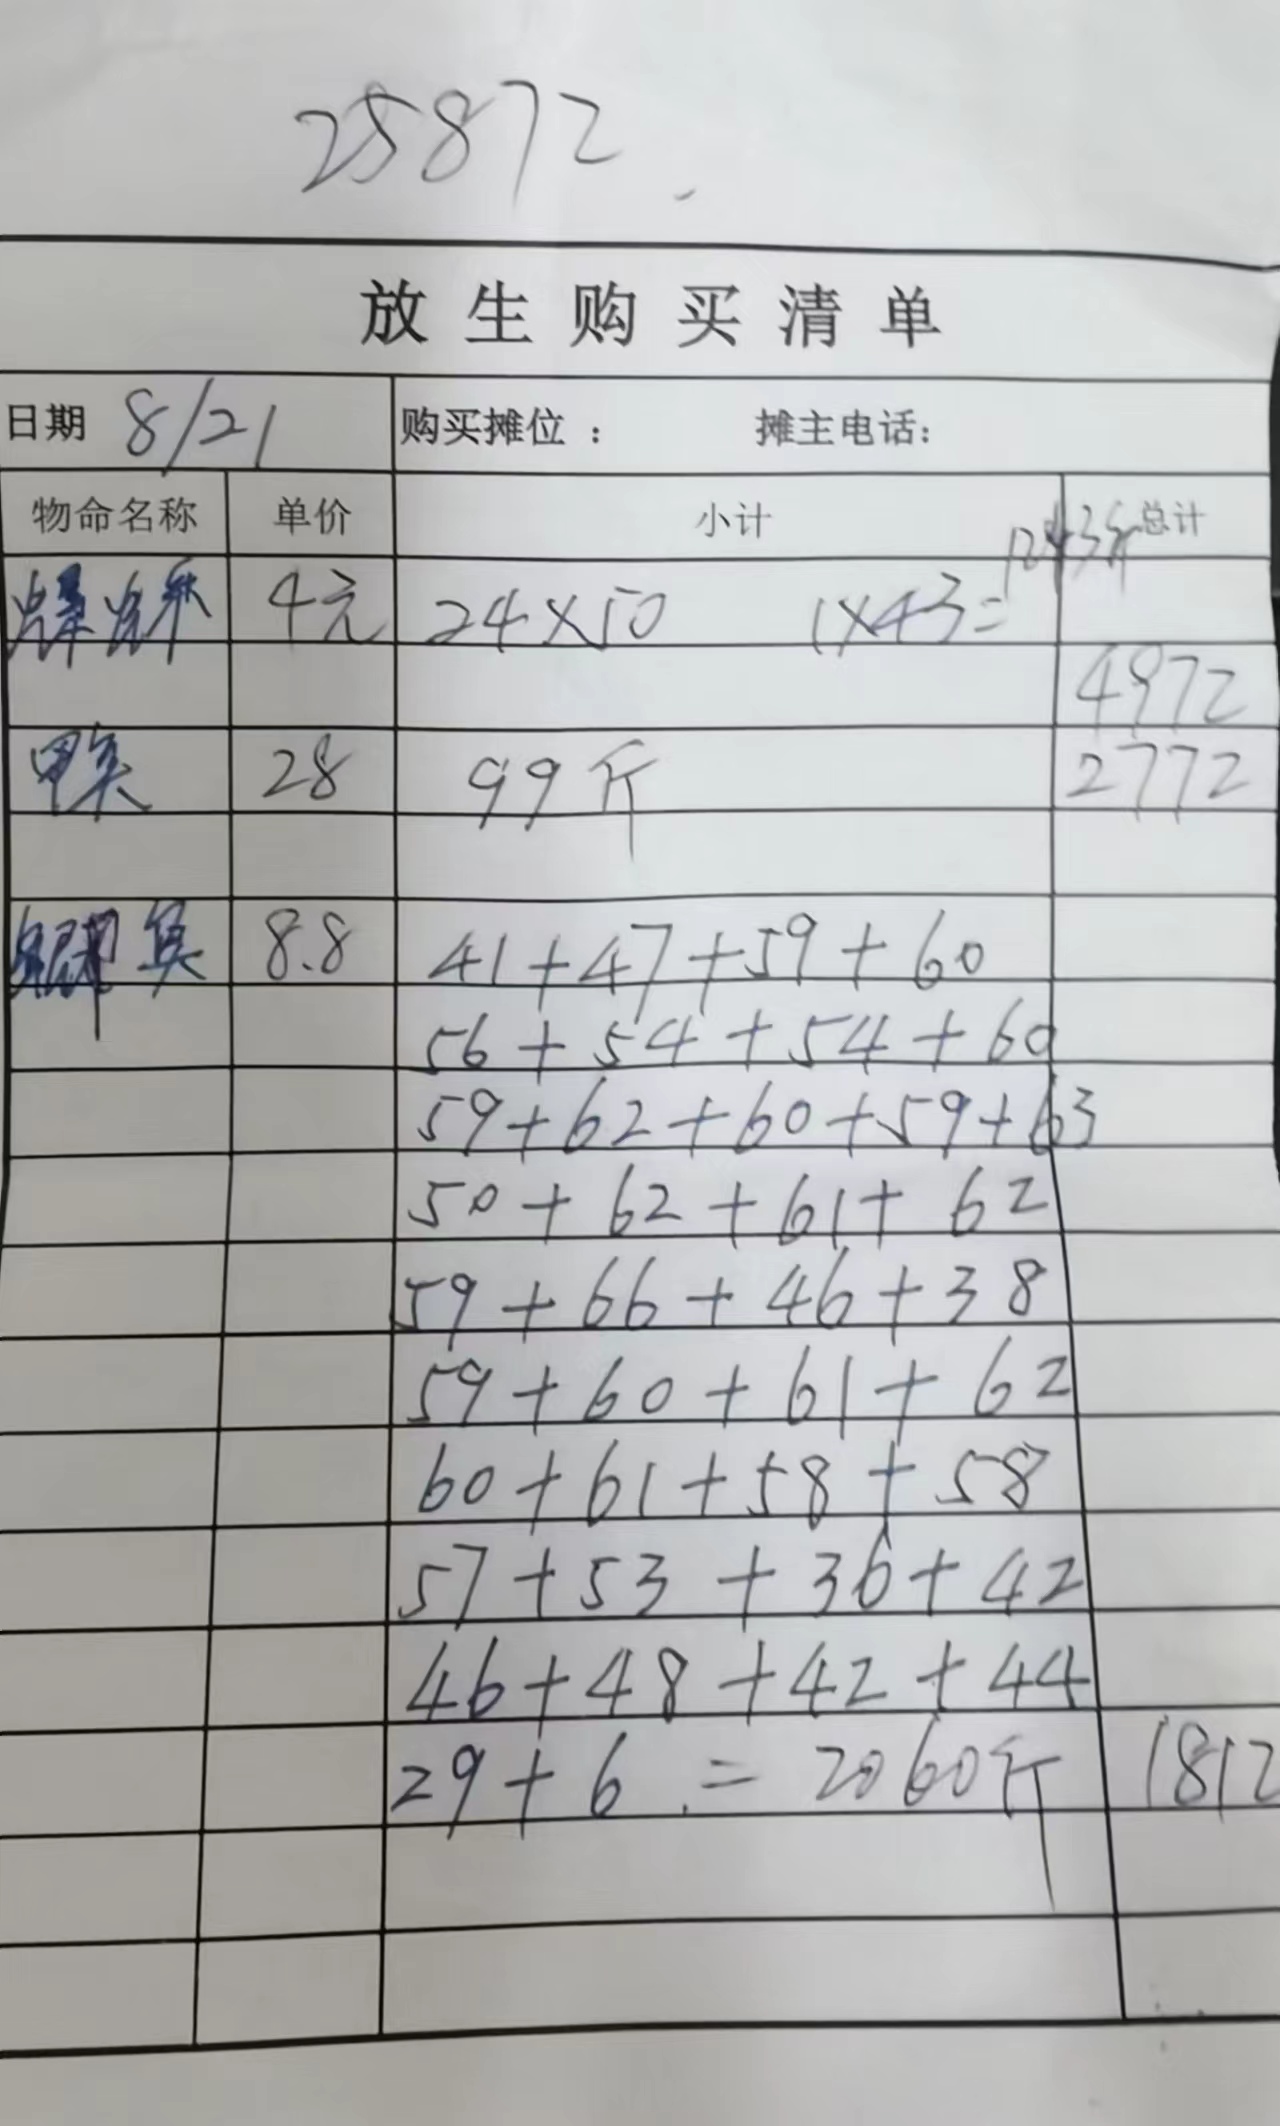 25872
放生购买清单
日期 8/21 购买摊位： 摊主电话：
物命名称 单价 小计 总计
4元 24×50 1×43= 1243斤
4972
甲鱼 28 99斤 2772
鱼 8.8 41+47+59+60
56+54+54+60
59+62+60+59+63
50+62+61+62
59+66+46+38
59+60+61+62
60+61+58+58
57+53+36+42
46+48+42+44
29+6=2060斤 1812